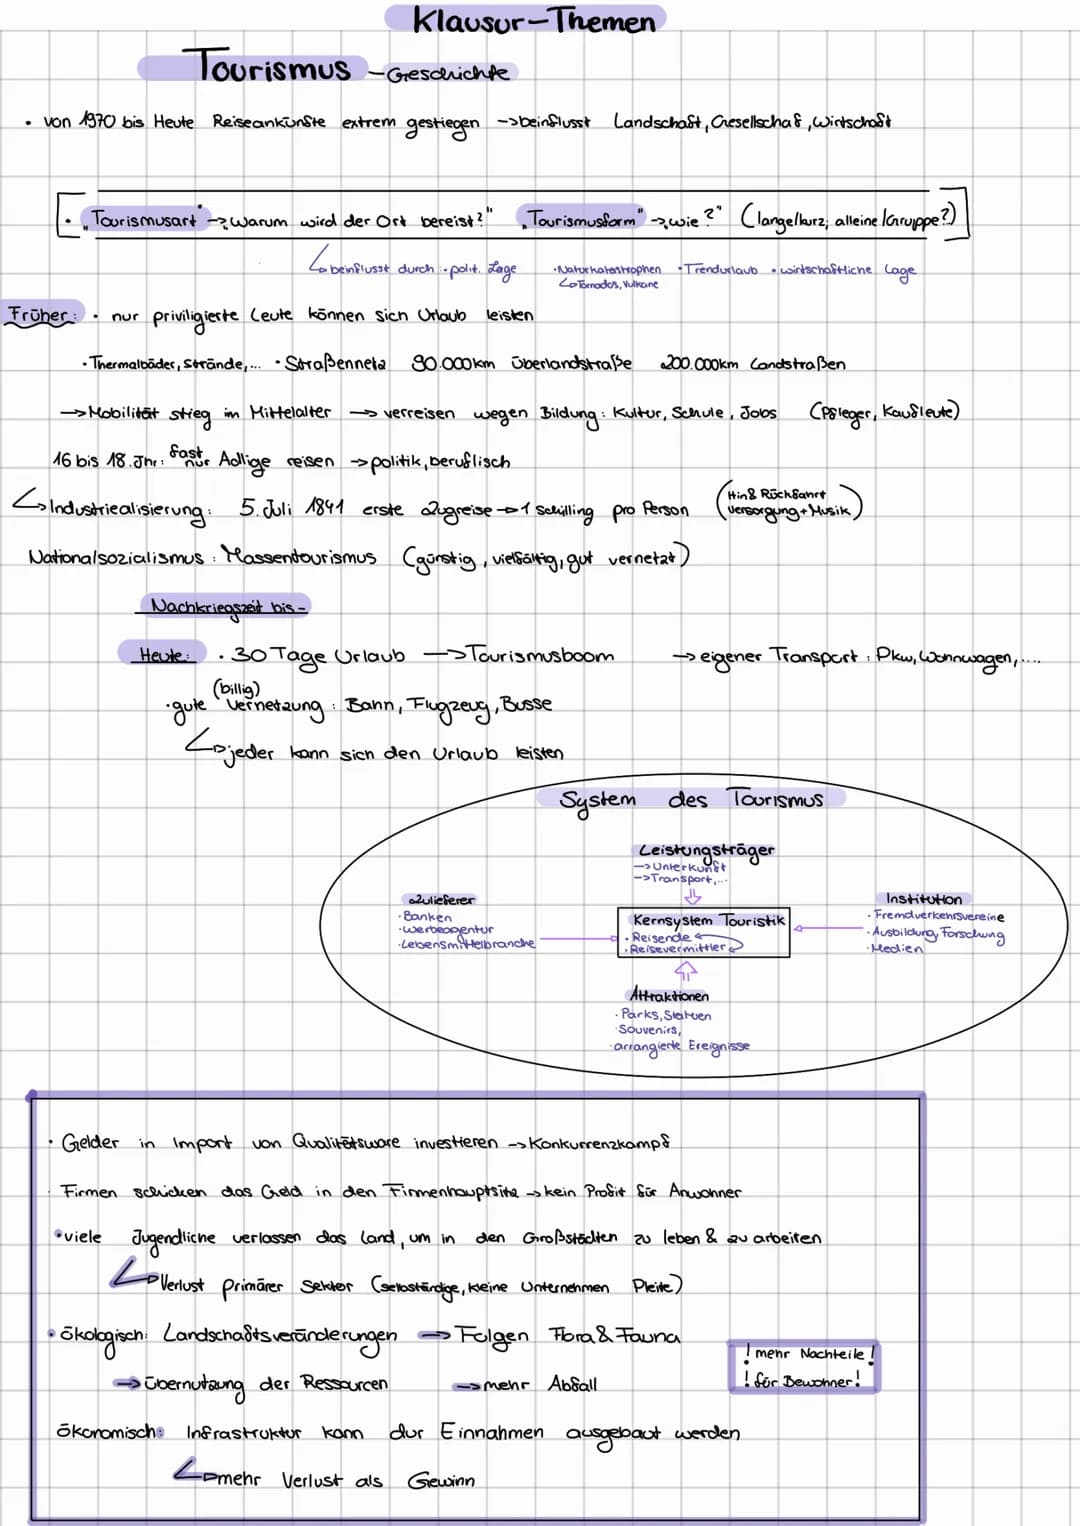 Klausur-Themen
Tourismus - Geschichte
• von 1970 bis Heute Reiseankünfte extrem gestiegen -> beinflusst Landschaft, Gesellschaf, Wirtschaft
• „Tourismusart" -> „Warum wird der Ort bereist?" „Tourismusform" -> „wie?" (lange/kurz; alleine/Gruppe?)
↳ beinflusst durch: • polit. Lage • Naturkatastrophen • Trendurlaub • wirtschaftliche Lage
↳ Tornados, Vulkane
Früher: • nur priviligierte Leute können sich Urlaub leisten
• Thermalbäder, Strände,... • Straßennetz 90.000km Überlandstraße 200.000km Landstraßen
-> Mobilität stieg im Mittelalter -> verreisen wegen Bildung: Kultur, Schule, Jobs (Pfleger, Kaufleute)
16 bis 18. Jhr: fast nur Adlige reisen -> politik, beruflisch
↳ Industriealisierung: 5. Juli 1841 erste Zugreise -> 1 Schilling pro Person (Hin & Rückfahrt Versorgung + Musik)
Nationalsozialismus: Massentourismus (günstig, vielfältig, gut vernetzt)
Nachkriegszeit bis -
Heute: • 30 Tage Urlaub -> Tourismusboom -> eigener Transport: Pkw, Wohnwagen,....
(billig)
• gute Vernetzung: Bahn, Flugzeug, Busse
↳ jeder kann sich den Urlaub leisten
System des Tourismus
Leistungsträger
-> Unterkunft
-> Transport,...
Zulieferer
• Banken
• Werbeagentur
• Lebensmittelbranche
Kernsystem Touristik
• Reisende
• Reisevermittler
Institution
• Fremdverkehrsvereine
• Ausbildung, Forschung
• Medien
Attraktionen
• Parks, Statuen
• Souvenirs,
• arrangierte Ereignisse
• Gelder in Import von Qualitätsware investieren -> Konkurrenzkampf
• Firmen schicken das Geld in den Firmenhauptsitz -> kein Profit für Anwohner
• viele Jugendliche verlassen das Land, um in den Großstädten zu leben & zu arbeiten
↳ Verlust primärer Sektor (selbständige, kleine Unternehmen Pleite)
• ökologisch: Landschaftsveränderungen -> Folgen Flora & Fauna
-> Übernutzung der Ressourcen -> mehr Abfall
! mehr Nachteile !
! für Bewohner !
ökonomisch: Infrastruktur kann dur Einnahmen ausgebaut werden
↳ mehr Verlust als Gewinn